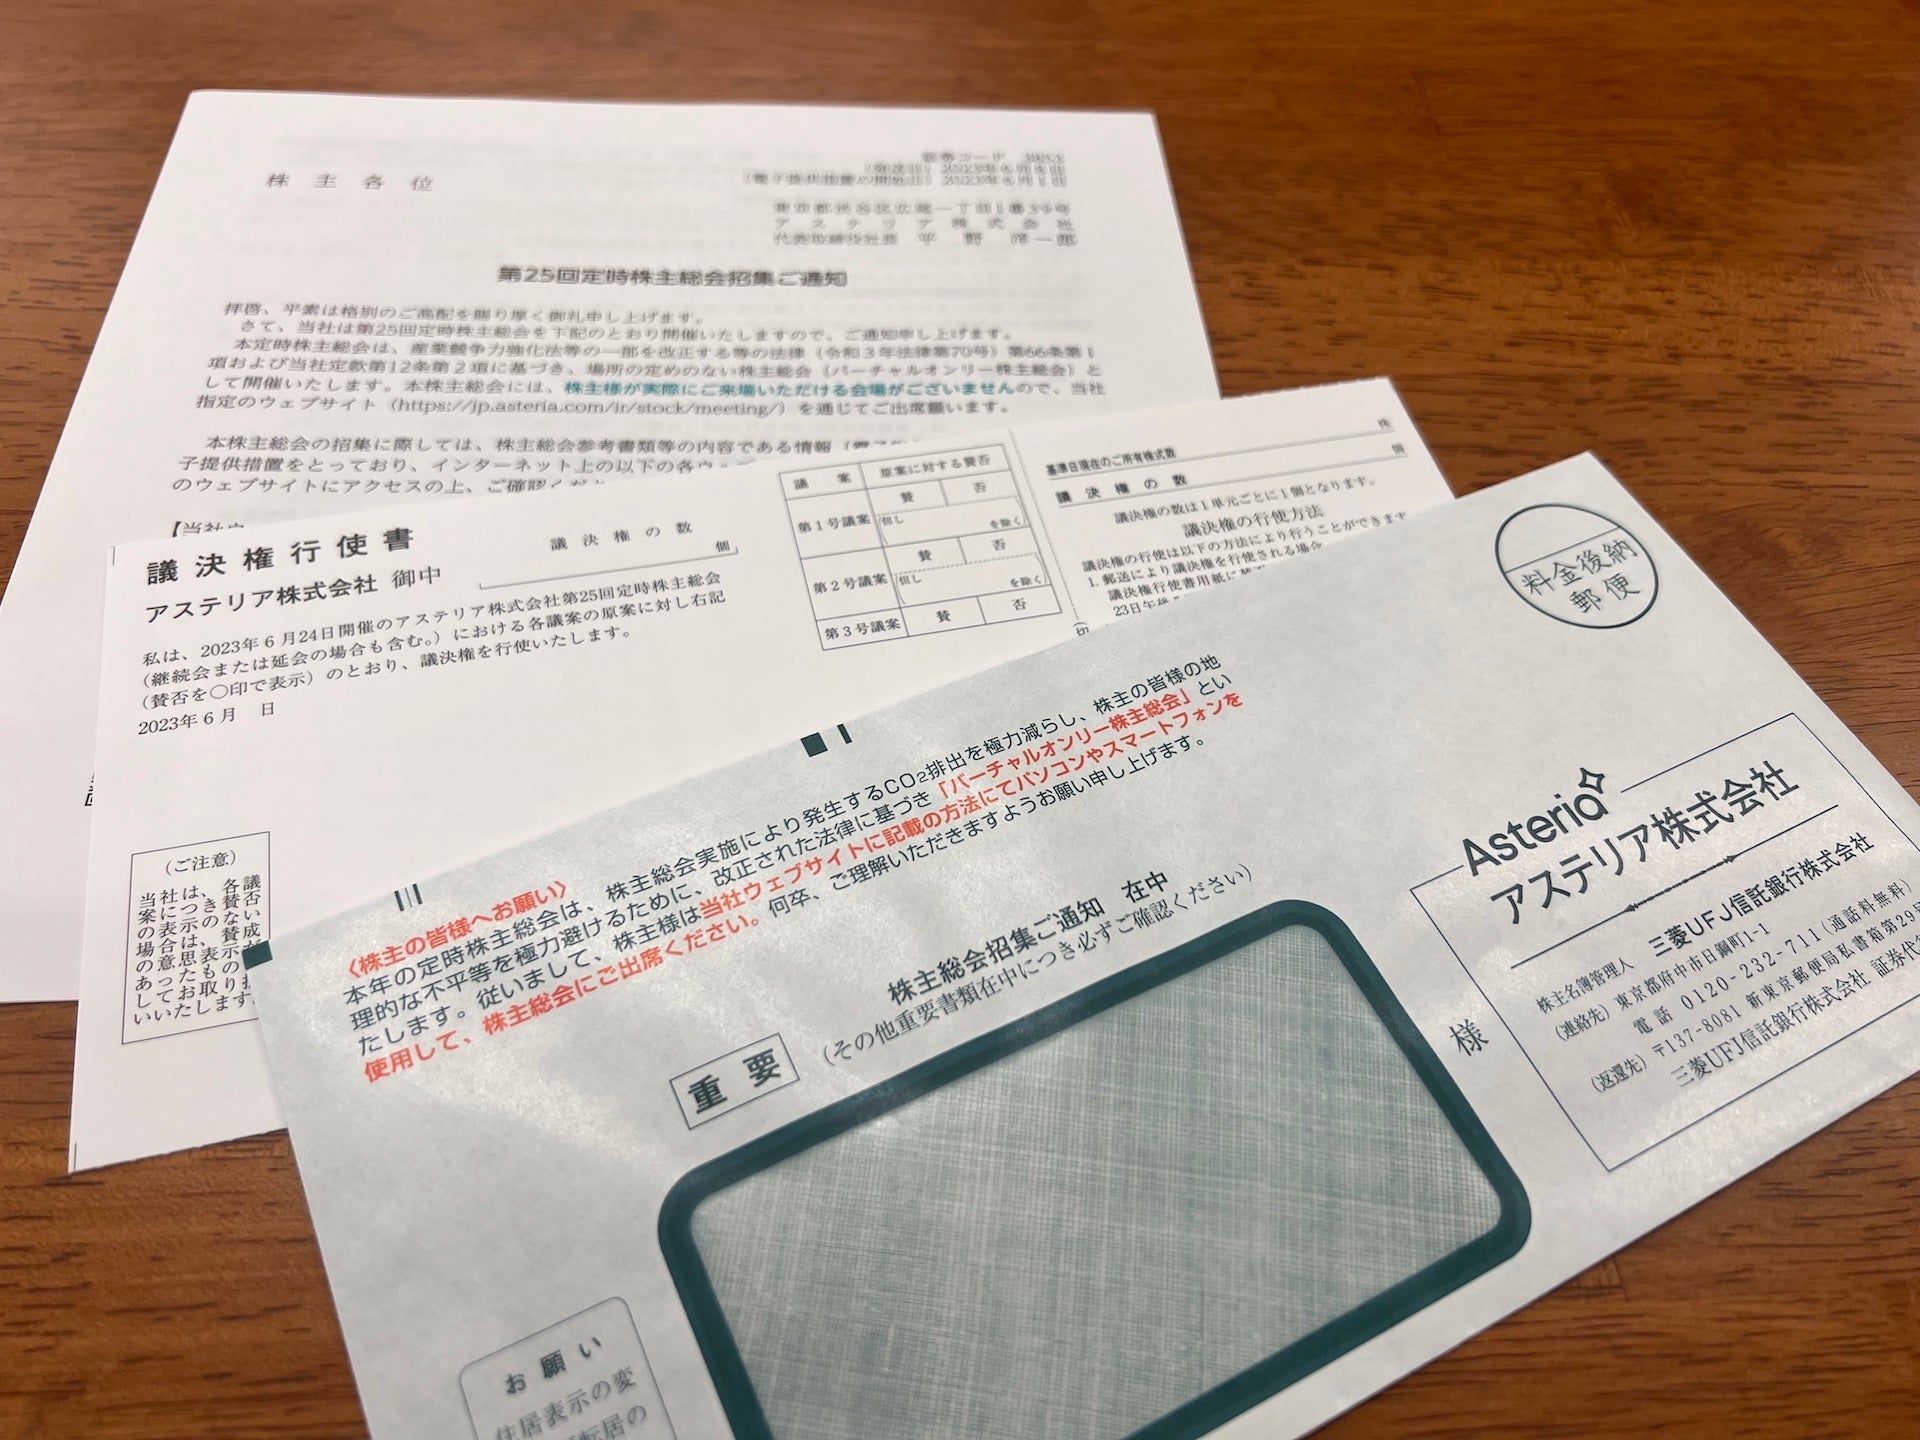 株主各位
東京都渋谷区広尾一丁目1番39号
アステリア株式会社
代表取締役社長 平野 洋一郎
第25回定時株主総会招集ご通知
拝啓、平素は格別のご高配を賜り厚く御礼申し上げます。
さて、当社は第25回定時株主総会を下記のとおり開催いたしますので、ご通知申し上げます。
本定時株主総会は、産業競争力強化法等の一部を改正する等の法律(令和3年法律第70号)第66条第1
項および当社定款第12条第2項に基づき、場所の定めのない株主総会(バーチャルオンリー株主総会)と
して開催いたします。本株主総会には、株主様が実際にご来場いただける会場がございませんので、当社
指定のウェブサイト(https://jp.asteria.com/ir/stock/meeting/)を通じてご出席願います。
本株主総会の招集に際しては、株主総会参考書類等の内容である情報
子提供措置をとっており、インターネット上の以下の各ウ
のウェブサイトにアクセスの上、ご確認くだ
議決権行使書
アステリア株式会社 御中
議決権の数
個
私は、2023年6月24日開催のアステリア株式会社第25回定時株主総会
(継続会または延会の場合も含む。)における各議案の原案に対し右記
(賛否を○印で表示)のとおり、議決権を行使いたします。
2023年6月 日
議案 原案に対する賛否
第1号議案 賛 否
但し を除く
第2号議案 賛 否
但し を除く
第3号議案 賛 否
基準日現在のご所有株式数 株
議決権の数 個
議決権の数は1単元ごとに1個となります。
議決権の行使方法
議決権の行使は以下の方法により行うことができます
1. 郵送により議決権を行使される場合
議決権行使書用紙に
23日午後
(ご注意)
当社は、各議
案につき賛否
の表示のない
場合は、賛成
の意思表示が
あったものと
してお取り
いたします
料金後納
郵便
〈株主の皆様へお願い〉
本年の定時株主総会は、株主総会実施により発生するCO2排出を極力減らし、株主の皆様の地
理的な不平等を極力避けるために、改正された法律に基づき「バーチャルオンリー株主総会」とい
たします。従いまして、株主様は当社ウェブサイトに記載の方法にてパソコンやスマートフォンを
使用して、株主総会にご出席ください。何卒、ご理解いただきますようお願い申し上げます。
重要
株主総会招集ご通知 在中
(その他重要書類在中につき必ずご確認ください)
様
Asteria
アステリア株式会社
株主名簿管理人 三菱UFJ信託銀行株式会社
(連絡先) 東京都府中市日鋼町1-1
電話 0120-232-711(通話料無料)
(返還先) 〒137-8081 新東京郵便局私書箱第29号
三菱UFJ信託銀行株式会社 証券代
お願い
住居表示の変
転居の